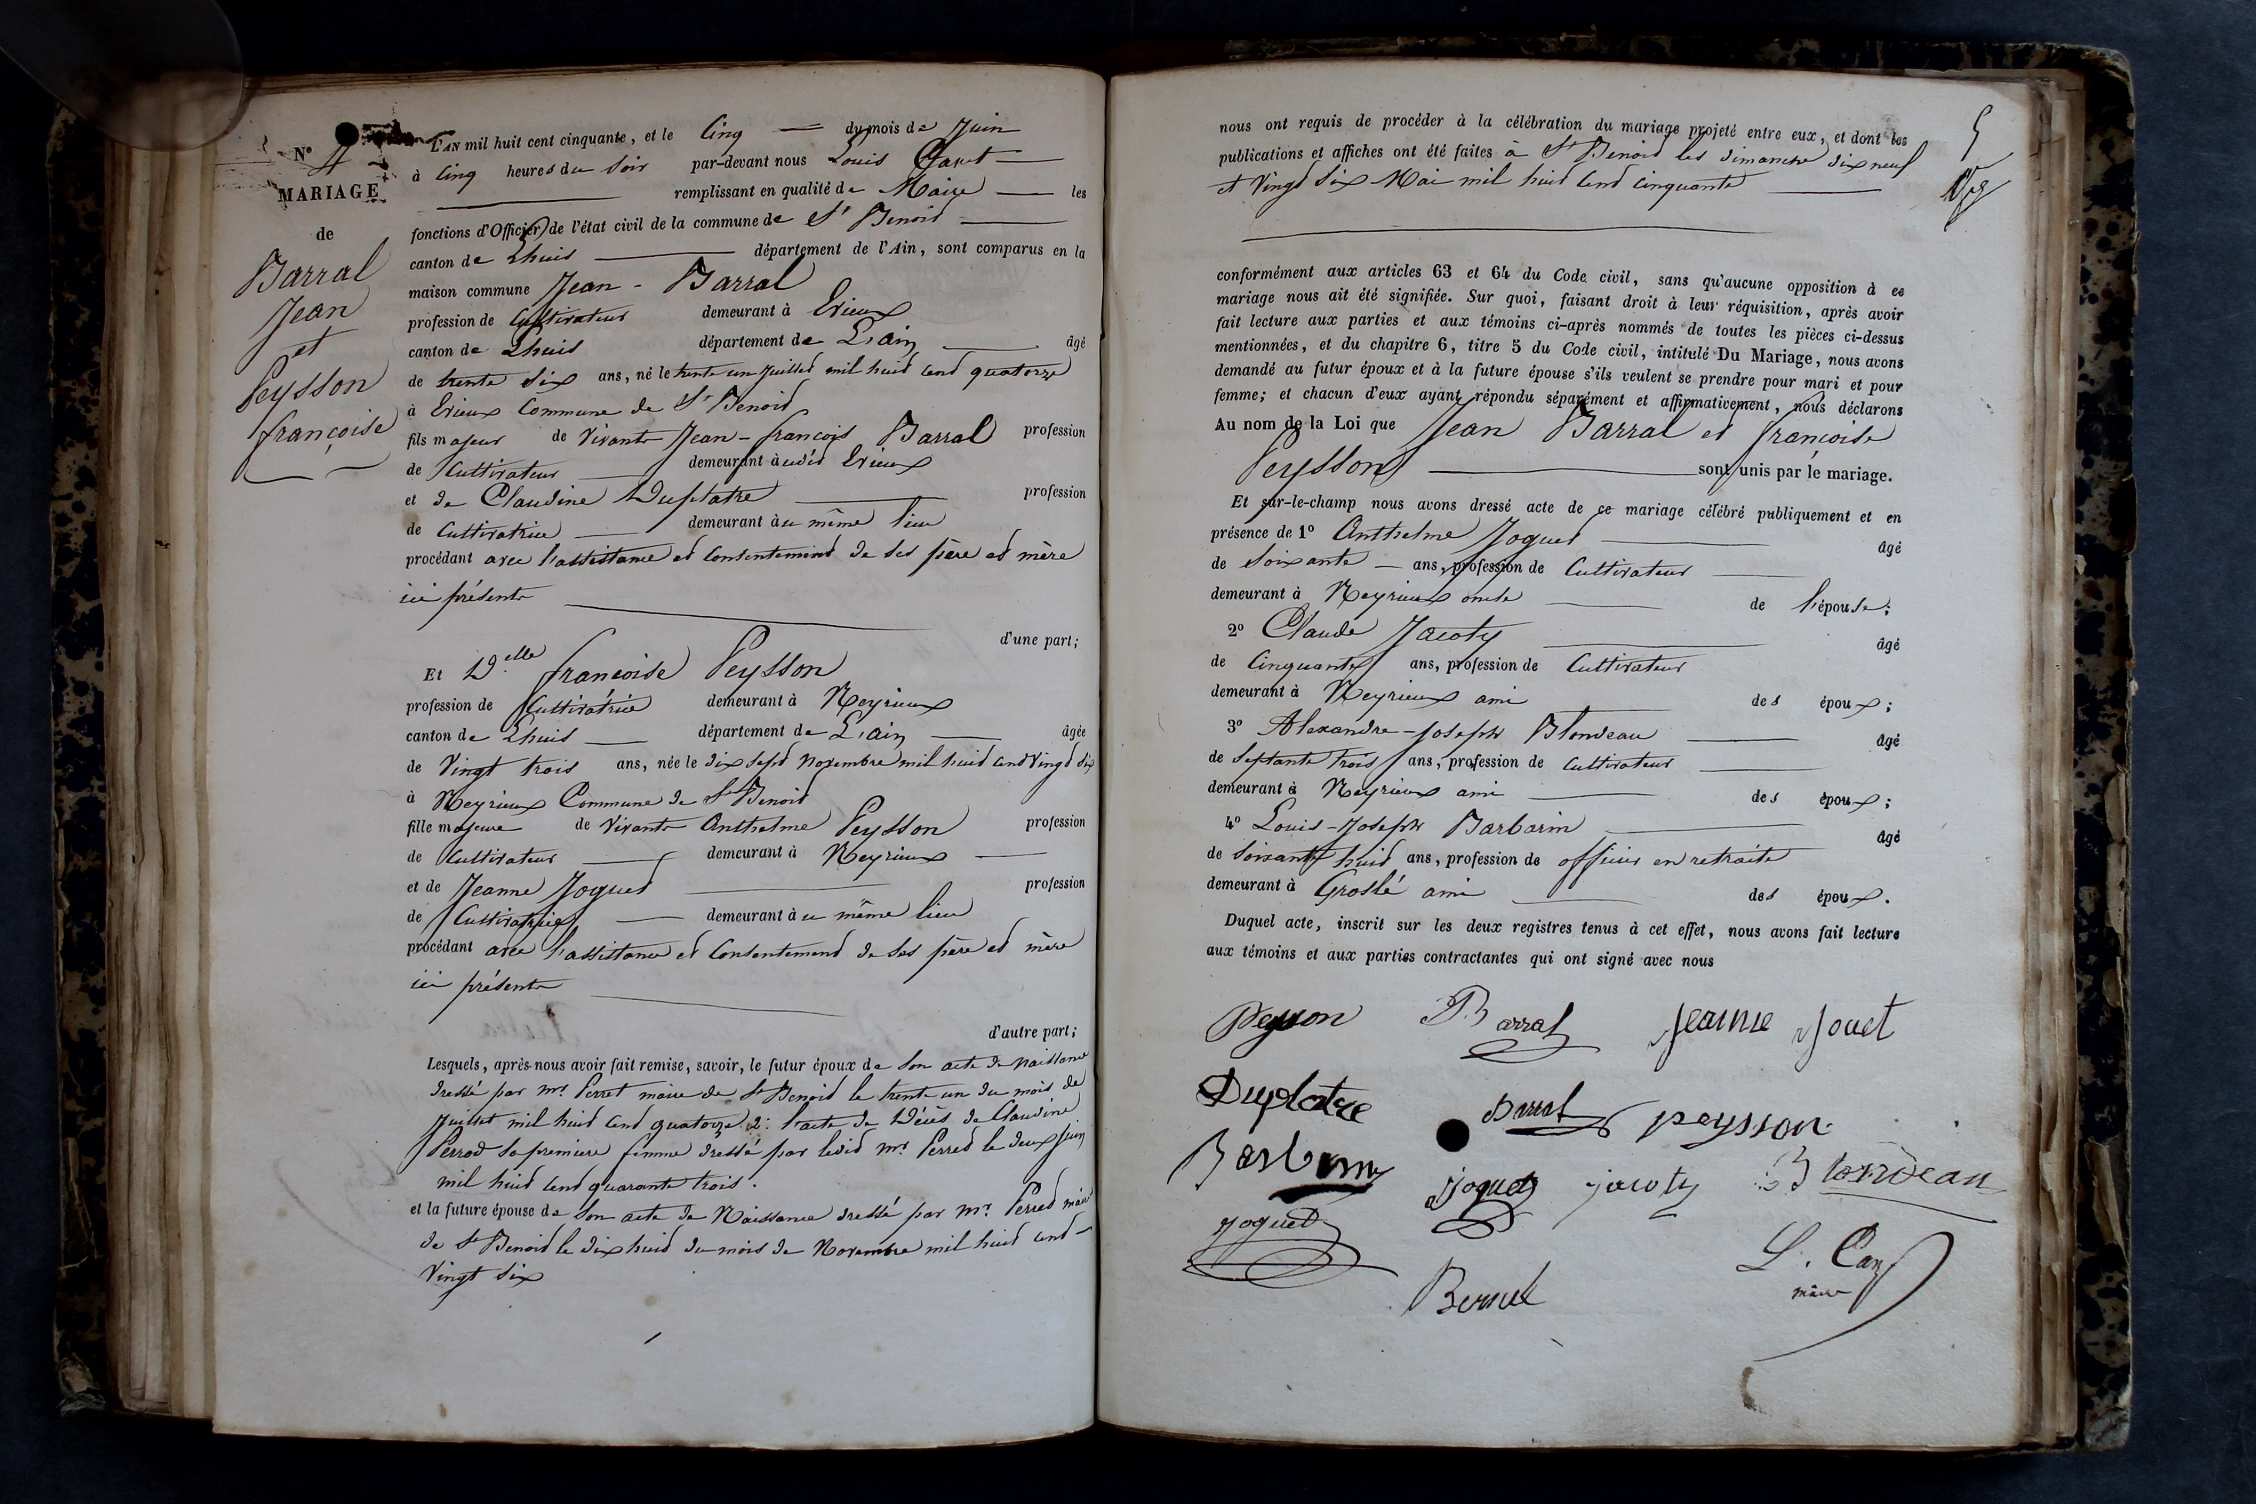 N° 4
MARIAGE
de
Barral
Jean
et
Peysson
françoise
L'AN mil huit cent cinquante, et le Cinq du mois de Juin
à Cinq heures du Soir par-devant nous Louis
remplissant en qualité de Maire les
fonctions d'Officier de l'état civil de la commune de St Benoit
canton de Lhuis département de l'Ain, sont comparus en la
maison commune Jean - Barral
profession de Cultivateur demeurant à Evieux
canton de Lhuis département de L'ain âgé
de trente six ans, né le trente un Juillet mil huit cent quatorze
à Evieux Commune de St Benoit
fils majeur de Vivants Jean-françois Barral profession
de Cultivateur demeurant à udit Evieux
et de Claudine Duplatre profession
de Cultivatrice demeurant àu même lieu
procédant avec l'assistance et Consentement de ses père et mère
ici présents
d'une part;
Et Delle françoise Peysson
profession de Cultivatrice demeurant à Neyrieux
canton de Lhuis département de L'ain âgée
de Vingt trois ans, née le dix sept Novembre mil huit cent Vingt Six
à Neyrieux Commune de St Benoit
fille majeure de Vivants Anthelme Peysson profession
de Cultivateur demeurant à Neyrieux
et de Jeanne Joguet profession
de Cultivatrice demeurant àu même lieu
procédant avec l'assistance et Consentement de ses père et mère
ici présents
d'autre part;
Lesquels, après nous avoir fait remise, savoir, le futur époux de Son acte de Naissance
dressé par mr Perret maire de St Benoit le trente un du mois de
Juillet mil huit cent quatorze 2: l'acte de Décès de Claudine
Perrod sa premiere femme dressé par ledit mr Perret le deux Juin
mil huit cent quarante trois.
et la future épouse de Son acte de Naissance dressé par mr Perret maire
de St Benoit le dix huit du mois de Novembre mil huit cent
Vingt Six
5
nous ont requis de procéder à la célébration du mariage projeté entre eux, et dont les
publications et affiches ont été faites à St Benoit les dimanche dix neuf
et Vingt Six Mai mil huit cent cinquante
conformément aux articles 63 et 64 du Code civil, sans qu'aucune opposition à ce
mariage nous ait été signifiée. Sur quoi, faisant droit à leur réquisition, après avoir
fait lecture aux parties et aux témoins ci-après nommés de toutes les pièces ci-dessus
mentionnées, et du chapitre 6, titre 5 du Code civil, intitulé Du Mariage, nous avons
demandé au futur époux et à la future épouse s'ils veulent se prendre pour mari et pour
femme; et chacun d'eux ayant répondu séparément et affirmativement, nous déclarons
Au nom de la Loi que Jean Barral et françoise
Peysson sont unis par le mariage.
Et sur-le-champ nous avons dressé acte de ce mariage célébré publiquement et en
présence de 1° Anthelme Joguet âgé
de Soixante ans, profession de Cultivateur
demeurant à Neyrieux oncle de l'épouse;
2° Claude Jacoty âgé
de Cinquante ans, profession de Cultivateur
demeurant à Neyrieux ami des époux;
3° Alexandre-Joseph Blondeau âgé
de Septante trois ans, profession de Cultivateur
demeurant à Neyrieux ami des époux;
4° Louis-Joseph Barbarin âgé
de Soixante huit ans, profession de officier en retraite
demeurant à Groslé ami des époux.
Duquel acte, inscrit sur les deux registres tenus à cet effet, nous avons fait lecture
aux témoins et aux parties contractantes qui ont signé avec nous
Peysson Barral Jeanne Jouet
Duplatre Barral peysson
Barbarin Joguet jacoty Blondeau
Joguet
L. Can
maire